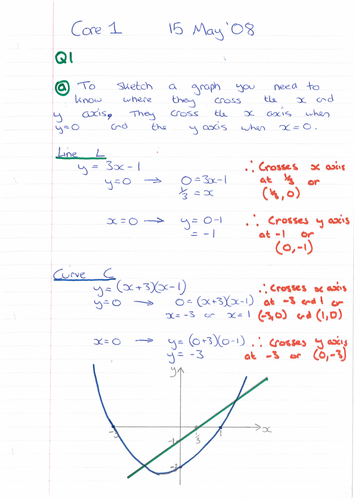 Core 1 15 May '08
Q1
(a) To sketch a graph you need to
know where they cross the x and
y axis. They cross the x axis when
y=0 and the y axis when x=0.
Line L
y = 3x-1
y=0 → 0=3x-1
1/3 = x
∴ Crosses x axis
at 1/3 or
(1/3, 0)
x=0 → y=0-1
= -1
∴ Crosses y axis
at -1 or
(0,-1)
Curve C
y=(x+3)(x-1)
y=0 → 0=(x+3)(x-1)
x=-3 or x=1
∴ Crosses x axis
at -3 and 1 or
(-3,0) and (1,0)
x=0 → y=(0+3)(0-1)
y=-3
∴ Crosses y axis
at -3 or (0,-3)
y
-3 1/3 1 x
-1